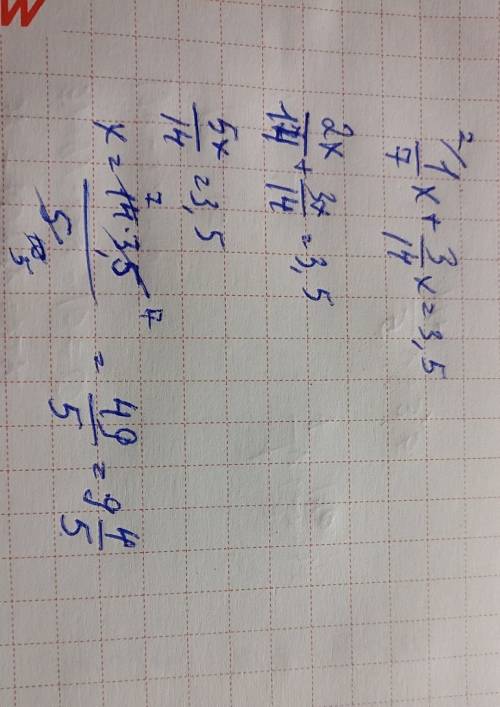 W
²/ 1/7 x + 3/14 x = 3,5
2x/14 + 3x/14 = 3,5
5x/14 = 3,5
x = 14 · 3,5 / 5 = 49/5 = 9 4/5